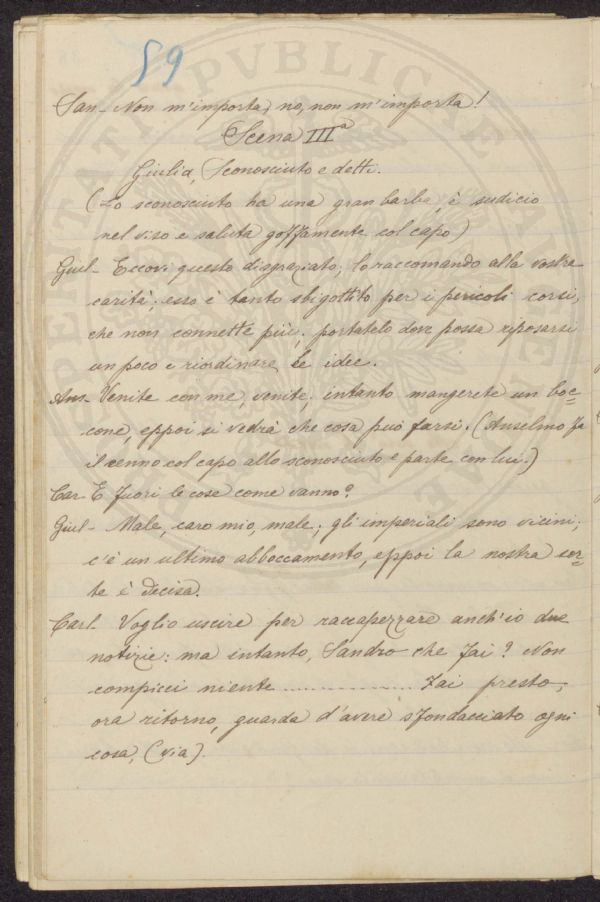 59
San- Non m'importa, no, non m'importa!
Scena IIIª
Giulia, Sconosciuto e detti.
(Lo sconosciuto ha una gran barba, è sudicio
nel viso e saluta goffamente col capo)
Giul- Eccovi questo disgraziato; lo raccomando alla vostra
carità; esso è tanto sbigottito per i pericoli corsi,
che non connette più; portatelo dove possa riposarsi
un poco e riordinare le idee.
Ans- Venite con me, venite; intanto mangerete un boc=
cone, eppoi si vedrà che cosa può farsi. (Anselmo fa
il cenno col capo allo sconosciuto e parte con lui.)
Car E fuori le cose come vanno?
Giul- Male, caro mio, male; gli imperiali sono vicini;
c'è un ultimo abboccamento, eppoi la nostra sor=
te è decisa.
Carl Voglio uscire per raccapezzare anch'io due
notizie: ma intanto, Sandro che fai? Non
compicci niente ................ Fai presto,
ora ritorno, guarda d'avere sfondacciato ogni
cosa, (via).
PVBLICHE